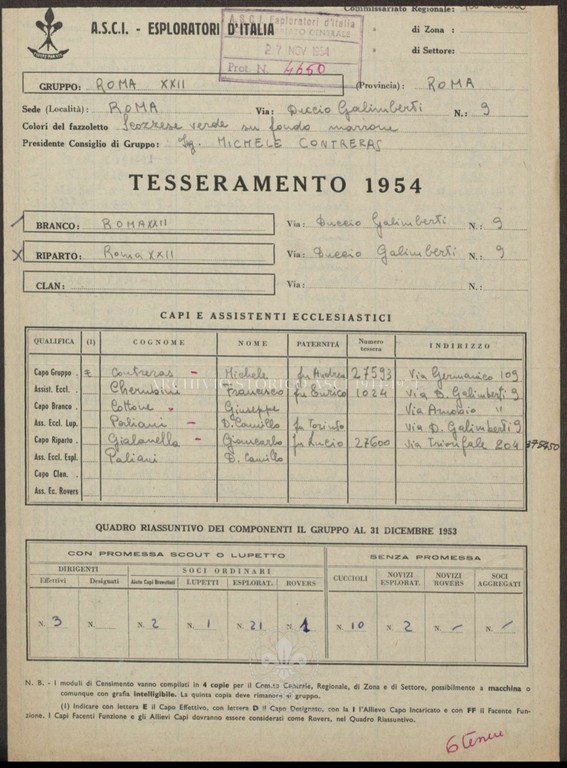 Commissariato Regionale:
A.S.C.I. - ESPLORATORI D'ITALIA
di Zona :
di Settore:
A.S.C.I. Esploratori d'Italia
27 NOV 1954
Prot. N. 4650
GRUPPO: ROMA XXII (Provincia): ROMA
Sede (Località): ROMA Via: Duccio Galimberti N.: 9
Colori del fazzoletto Scozzese verde su fondo marrone
Presidente Consiglio di Gruppo: Ing. MICHELE CONTRERAS
TESSERAMENTO 1954
BRANCO: ROMA XXII Via: Duccio Galimberti N.: 9
X RIPARTO: Roma XXII Via: Duccio Galimberti N.: 9
CLAN: Via: N.:
CAPI E ASSISTENTI ECCLESIASTICI
QUALIFICA (1) COGNOME NOME PATERNITÀ Numero tessera INDIRIZZO
Capo Gruppo . Contreras - Michele fu Andrea 27593 Via Germanico 109
Assist. Eccl. . Cherubini Francesco fu Enrico 1024 Via D. Galimberti 9
Capo Branco . Cottone Giuseppe Via Arnobio "
Ass. Eccl. Lup. Paliani - D. Camillo fu Via D. Galimberti 9
Capo Riparto . Gialanella - Giancarlo fu Lucio 27600 Via Trionfale 204 375450
Ass. Eccl. Espl. Paliani D. Camillo
Capo Clan. .
Ass. Ec. Rovers
ARCHIVIO STORICO ASCI
QUADRO RIASSUNTIVO DEI COMPONENTI IL GRUPPO AL 31 DICEMBRE 1953
CON PROMESSA SCOUT O LUPETTO SENZA PROMESSA
DIRIGENTI SOCI ORDINARI
Effettivi Designati Aiuto Capi Brevettati LUPETTI ESPLORAT. ROVERS CUCCIOLI NOVIZI ESPLORAT. NOVIZI ROVERS SOCI AGGREGATI
N. 3 N. N. 2 N. 1 N. 21 N. 1 N. 10 N. 2 N. - N. -
N. B. - I moduli di Censimento vanno compilati in 4 copie per il Comm.to Centrale, Regionale, di Zona e di Settore, possibilmente a macchina o
comunque con grafia intelligibile. La quinta copia deve rimanere al gruppo.
(1) Indicare con lettera E il Capo Effettivo, con lettera D il Capo Designato, con la I l'Allievo Capo Incaricato e con FF il Facente Fun-
zione. I Capi Facenti Funzione e gli Allievi Capi dovranno essere considerati come Rovers, nel Quadro Riassuntivo.
6 tessere